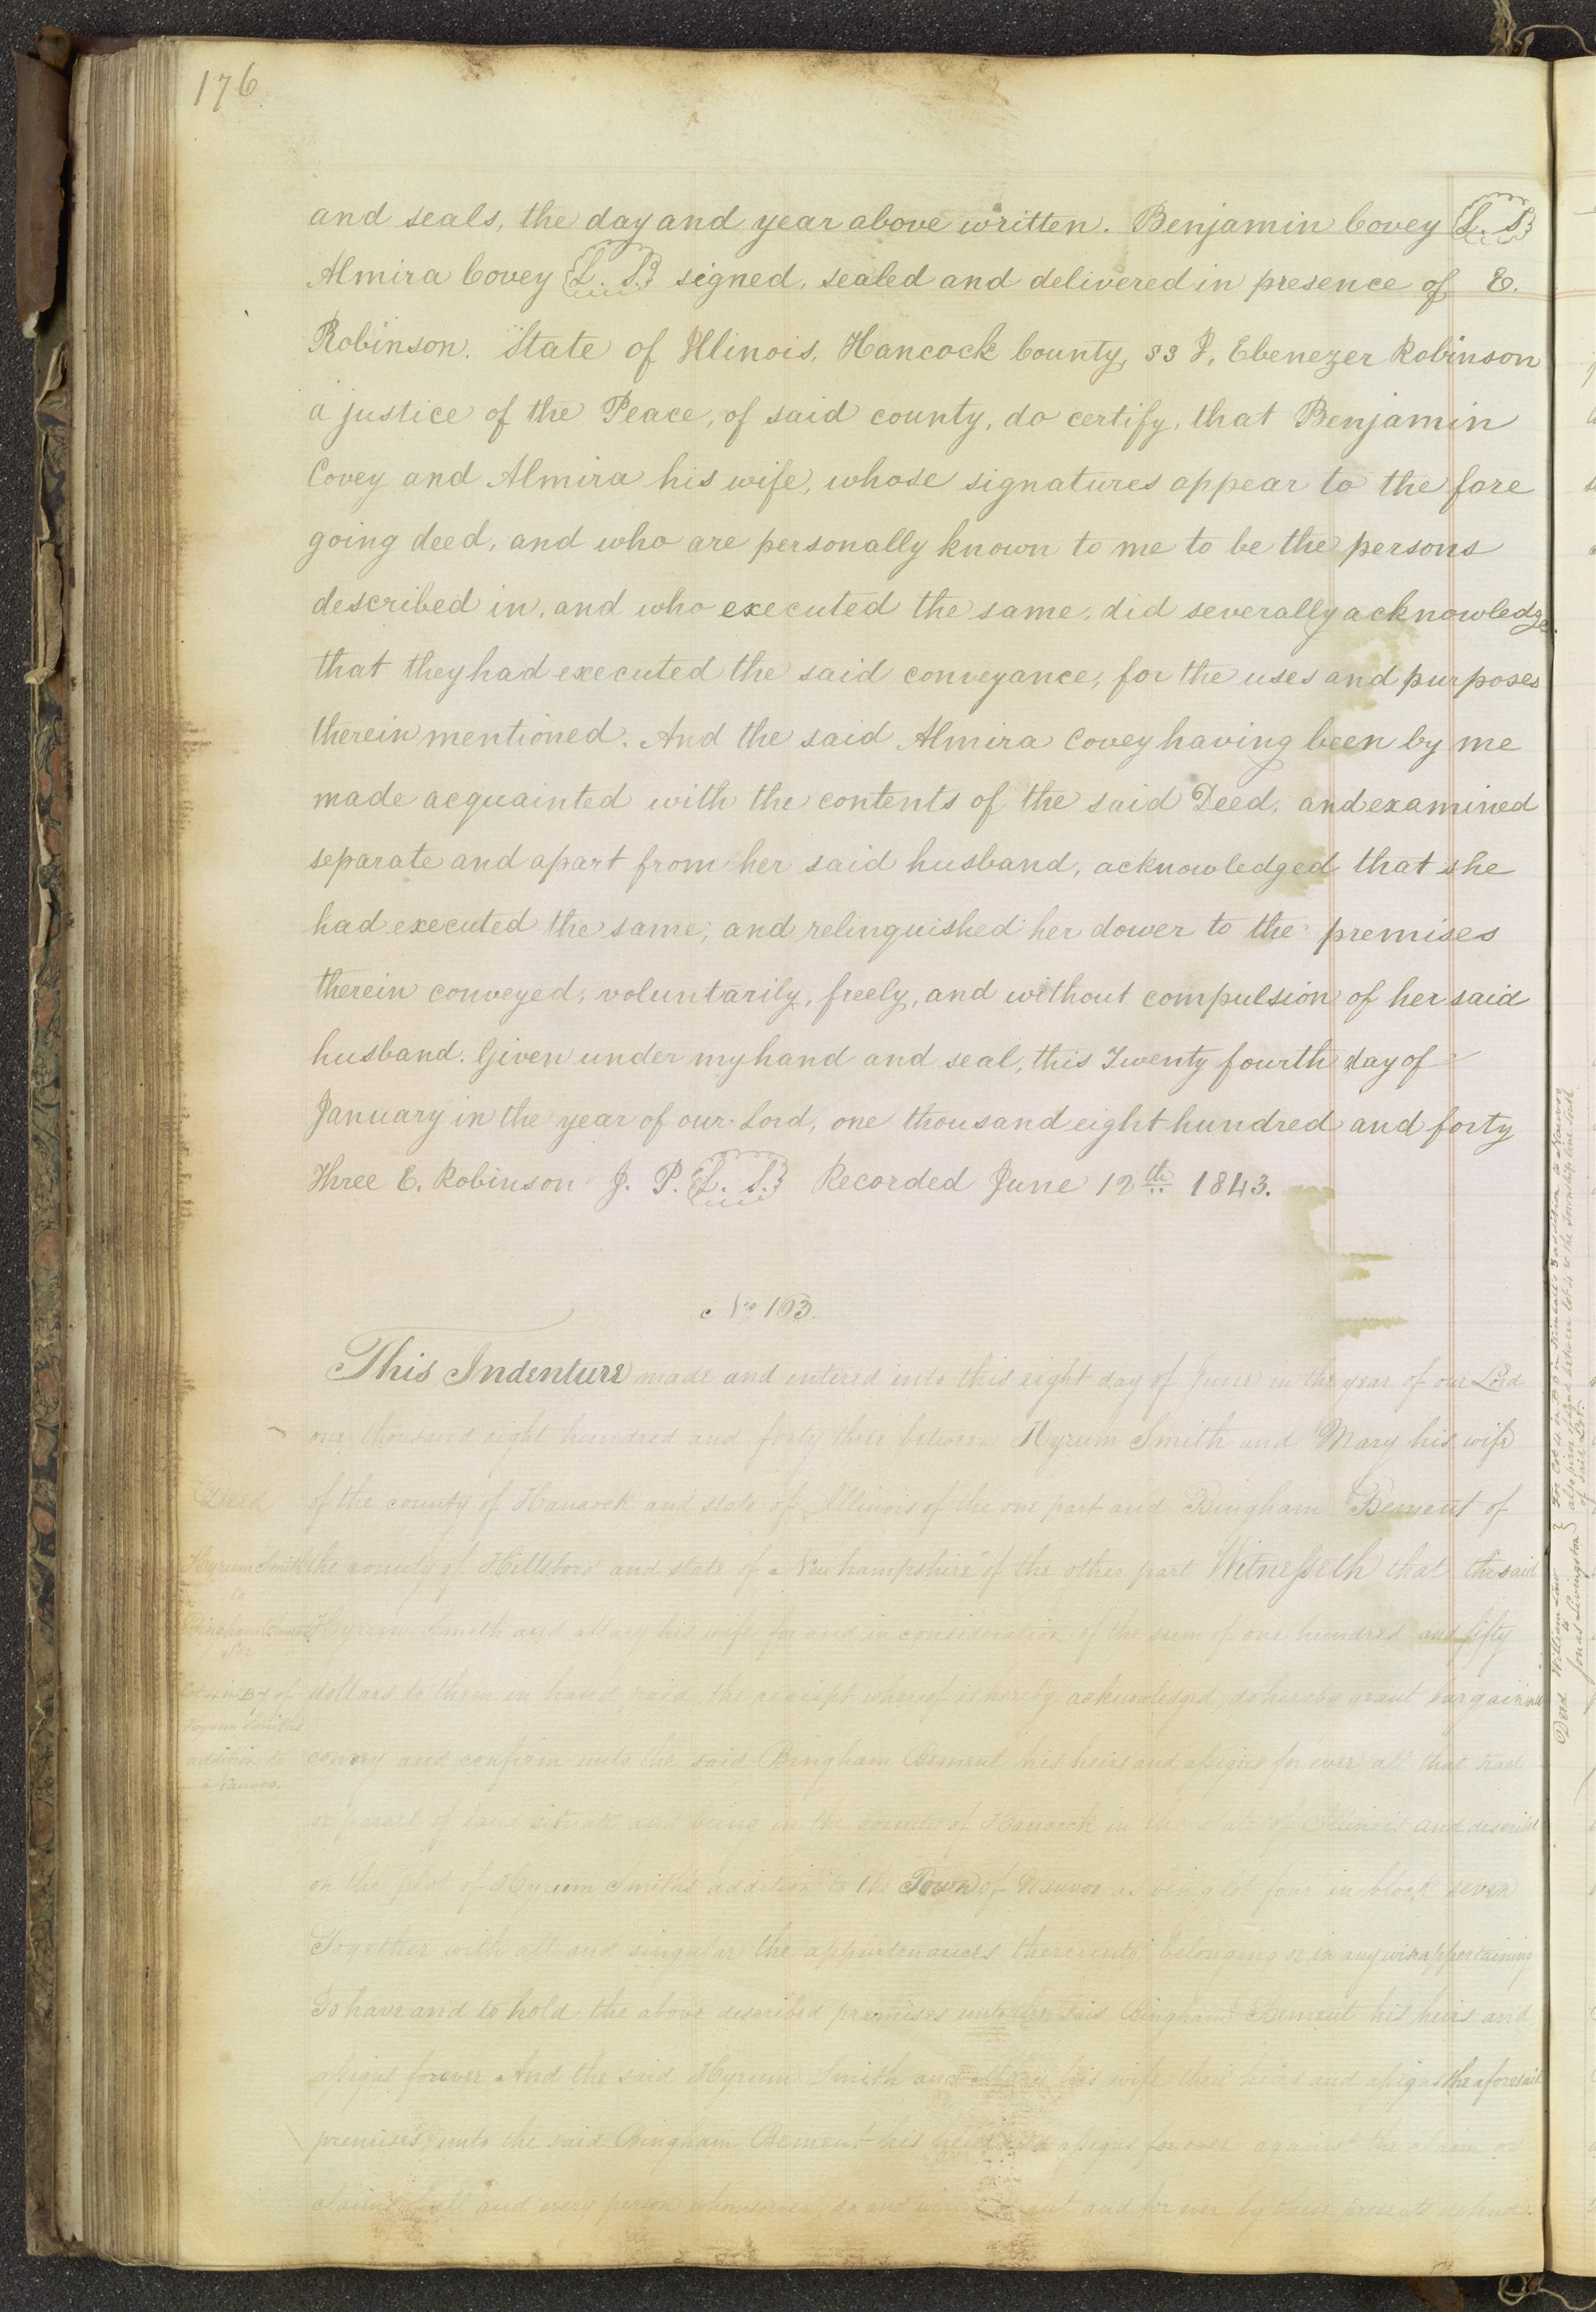 176
and seals, the day and year above written. Benjamin Covey {L. S.}
Almira Covey {L. S.} signed, sealed and delivered in presence of E.
Robinson. State of Illinois, Hancock County, ss I, Ebenezer Robinson
a justice of the Peace, of said county, do certify, that Benjamin
Covey and Almira his wife, whose signatures appear to the fore
going deed, and who are personally known to me to be the persons
described in, and who executed the same, did severally acknowledge.
that they had executed the said conveyance, for the uses and purposes
therein mentioned. And the said Almira Covey having been by me
made acquainted with the contents of the said Deed, and examined
separate and apart from her said husband, acknowledged that she
had executed the same, and relinquished her dower to the premises
therein conveyed, voluntarily, freely, and without compulsion of her said
husband. Given under my hand and seal, this Twenty fourth day of
January in the year of our Lord, one thousand eight hundred and forty
Three E. Robinson J. P. {L. S.} Recorded June 12th 1843.
No 103.
This Indenture made and entered into this eight day of June in the year of our Lord
one thousand eight hundred and forty three between Hyrum Smith and Mary his wife
of the county of Hancock and state of Illinois of the one part and Bingham Bement of
the county of Hillsboro and state of Newhampshire of the other part Witnesseth that the said
Hyrum Smith and Mary his wife for and in consideration of the sum of one hundred and fifty
dollars to them in hand paid, the receipt whereof is hereby acknowledged, do hereby grant bargain
convey and confirm unto the said Bingham Bement his heirs and assigns for ever, all that tract
or parcel of land situate and being in the county of Hancock in the state of Illinois and described
on the plot of Hyrum Smith's addition to the Town of Nauvoo as being lot four in block seven
Together with all and singular the appurtenances thereunto belonging or in any wise appertaining
To have and to hold the above described premises unto the said Bingham Bement his heirs and
assigns forever And the said Hyrum Smith and Mary his wife their heirs and assigns the aforesaid
premises, unto the said Bingham Bement his heirs and assigns for ever against the claim or
claims of all and every person whomsoever do and will warrant and for ever by these presents defend.
Deed
Hyrum Smith
to
Bingham Bement
For
Lot 4 in B 7 of
Hyrum Smiths
addition to
Nauvoo.
Deed William Law
to
Jonas Livingston